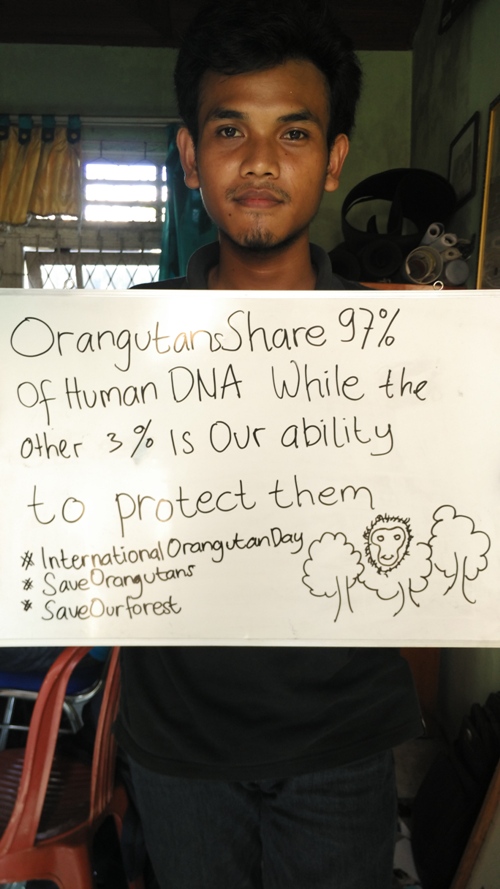 Orangutans Share 97%
Of Human DNA While the
Other 3% Is Our ability
to protect them
# International Orangutan Day
* Save Orangutans
* SaveOurforest